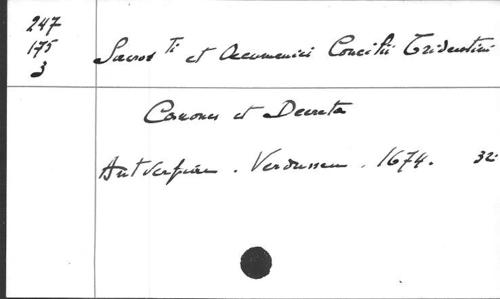 247
175
3
Sacros Ti et Oecumenici Concilii Tridentini
Canones et Decreta
Antverpiae . Verdussen . 1674. 32: